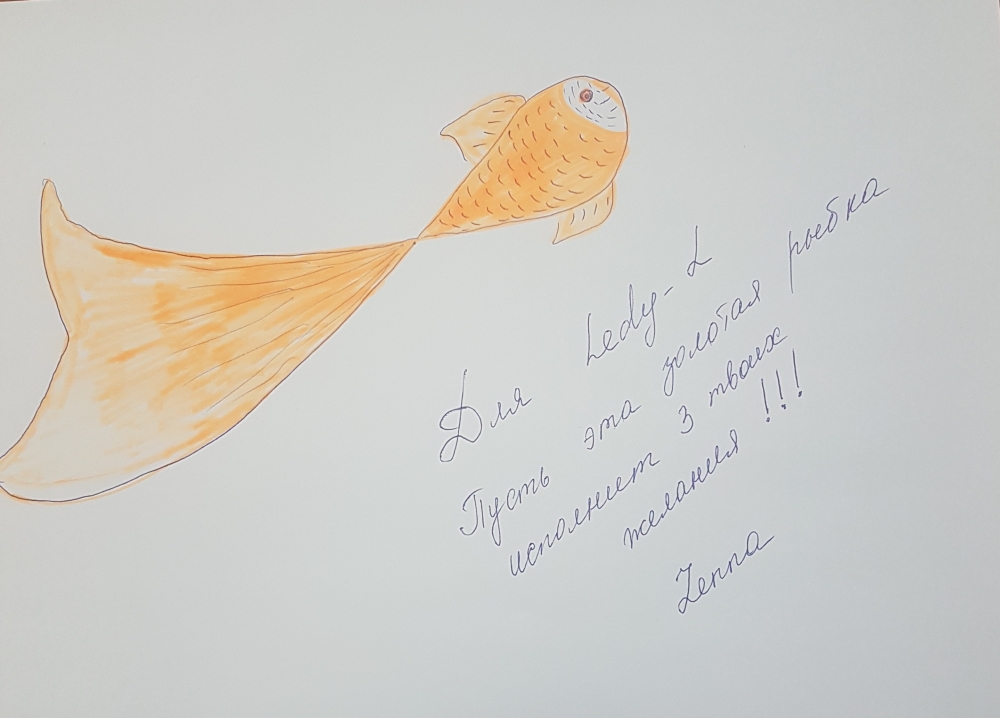 Для Ledy-L
Пусть эта золотая рыбка
исполнит 3 твоих
желания !!!
Zenna